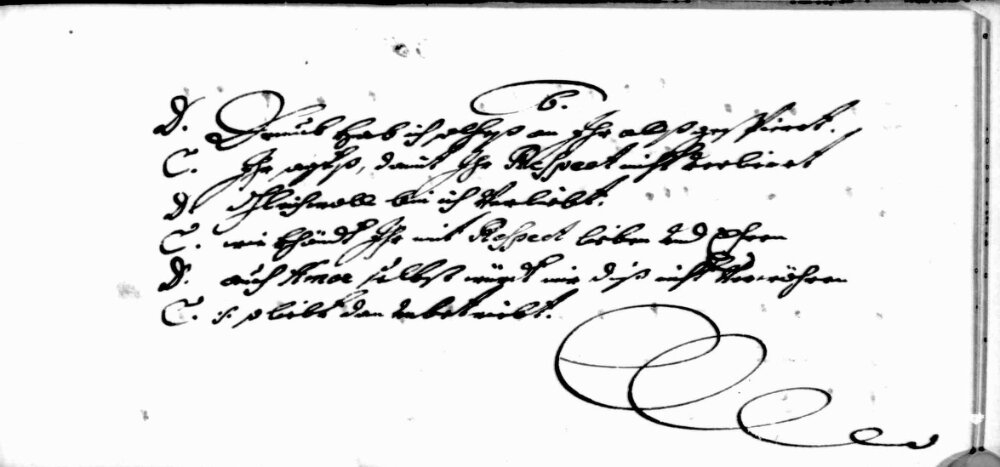 6.
D. Drumb hab ich solches an Ihr alls gespiert.
C. Ihr agirt, damit Ihr Respect nicht verliert
D. Gleichwoll bin ich verliebt.
C. wie khöndt Ihr mit Respect lieben und Ehren
D. auch Amor selbst würdt mir diß nicht verwöhren
C. so liebt dan unbetriebt.